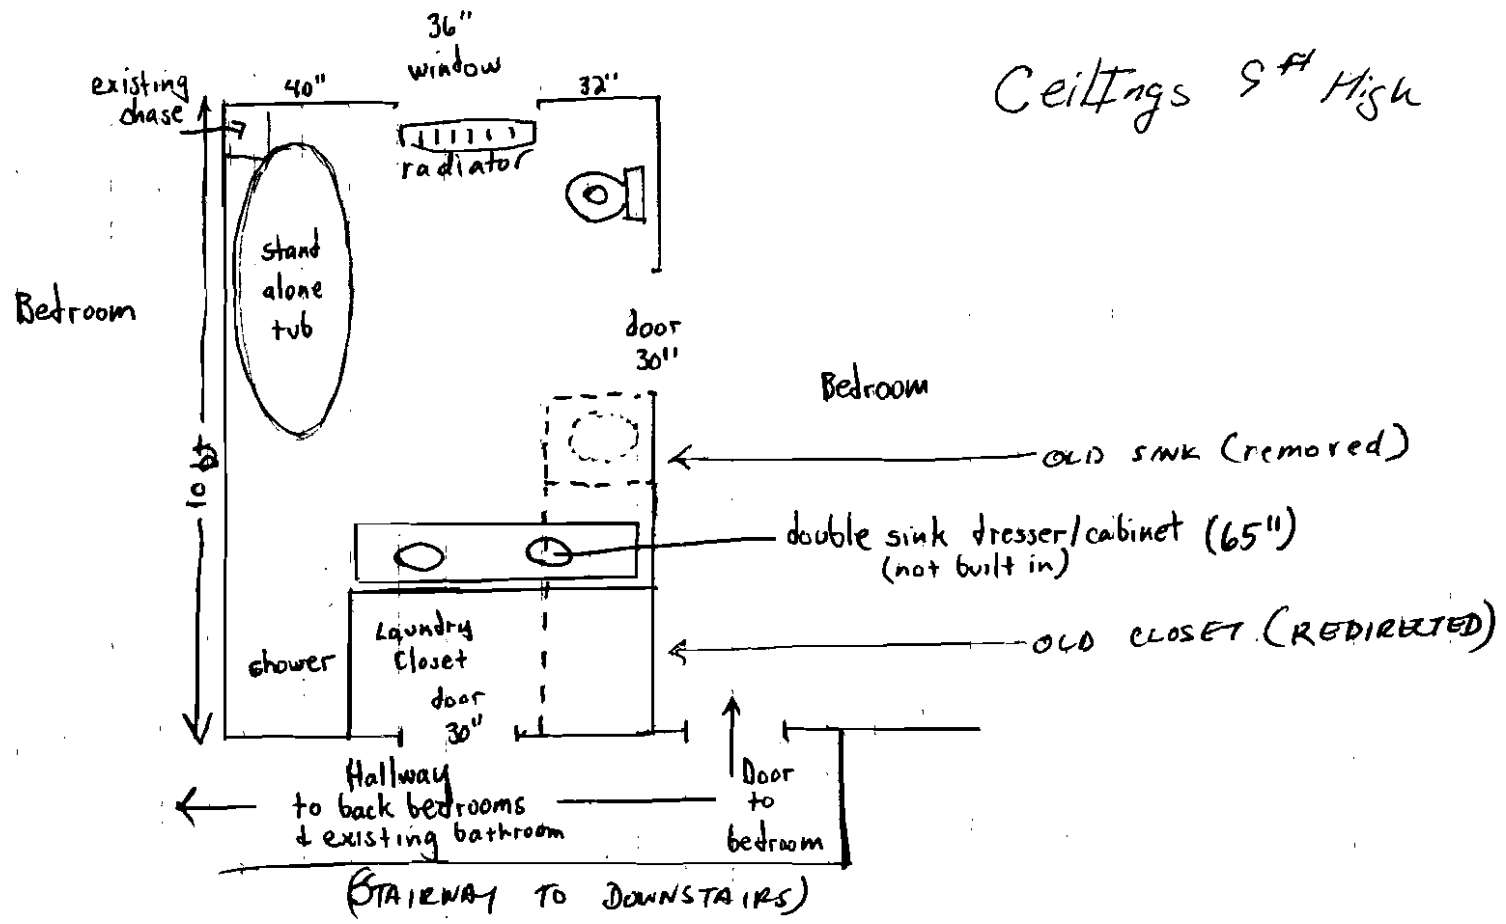 36"
window
existing
chase
40"
32"
CeilIngs 9 ft High
radiator
stand
alone
tub
Bedroom
door
30"
Bedroom
10 ft
OLD SINK (removed)
double sink dresser/cabinet (65")
(not built in)
Laundry
Closet
shower
OLD CLOSET (REDIRECTED)
door
30"
Hallway
to back bedrooms
& existing bathroom
Door
to
bedroom
(STAIRWAY TO DOWNSTAIRS)